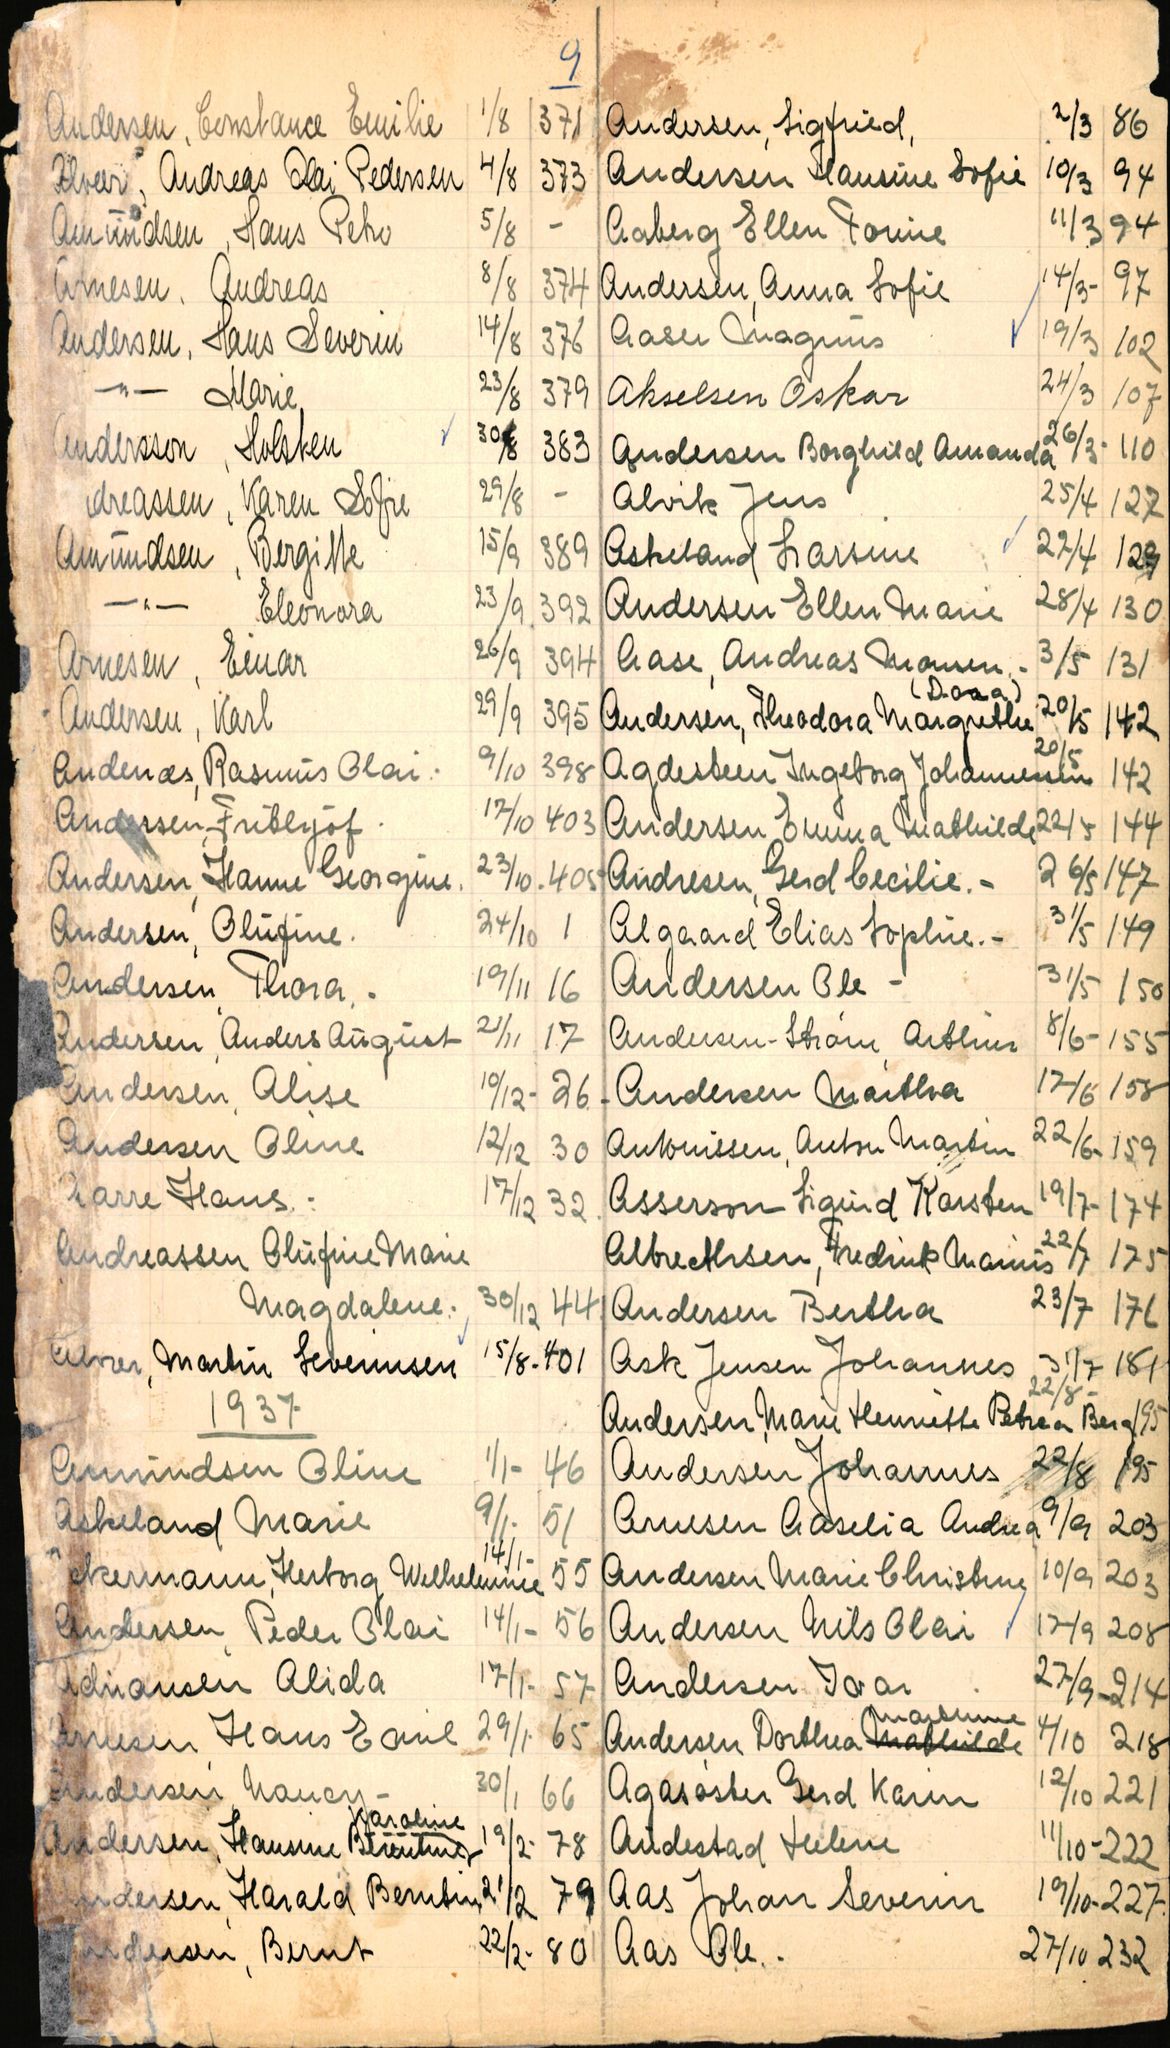 9
Andersen, Constance Emilie 1/8 371
Alver, Andreas Olai Pedersen 4/8 373
Amundsen, Hans Petro 5/8 -
Arnesen, Andreas 8/8 374
Andersen, Hans Severin 14/8 376
-"- Marie 23/8 379
Andersson, Holsken 30/8 383
dreassen, Karen Sofie 29/8 -
Amundsen, Bergitte 15/9 389
-"- Eleonora 23/9 392
Arnesen, Einar 26/9 394
Andersen, Karl 29/9 395
Andenæs, Rasmus Olai. 9/10 398
Andersen, Frithjof. 17/10 403
Andersen, Hanne Georgine. 23/10. 405
Andersen, Olufine. 24/10 1
Andersen, Thora. 19/11 16
Andersen, Anders August 21/11 17
Andersen, Alise 10/12- 26
Andersen Oline 12/12 30
Aarre Hans. 17/12 32
Andreassen Olufine Marie
Magdalene. 30/12 44
Alver, Martin Severinsen 15/8-401
1937
Amundsen Oline 1/1- 46
Askeland Marie 9/1. 51
Akermann, Herborg Wilhelmine 14/1- 55
Andersen, Peder Olai 14/1- 56
Adriansen Alida 17/1- 57
Arnesen Hans Emil 29/1. 65
Andersen Nancy- 30/1 66
Karoline
Andersen, Hansine Berentine 19/2- 78
Andersen, Harald Berntin 21/2 79
Andersen, Bernt 22/2- 80
Andersen, Sigfried, 2/3 86
Andersen Hansine Sofie 10/3 94
Aaberg Ellen Tomine 11/3 94
Andersen, Anna Sofie 14/3- 97
Aasen Magnus 19/3 102
Akselsen Oskar 24/3 107
Andersen Borghild Amanda 26/3- 110
Alvik Jens 25/4 127
Askeland Larsine 27/4 129
Andersen Ellen Marie 28/4 130
Aase, Andreas Monsen.- 3/5 131
(Dora)
Andersen, Theodora Margrethe 20/5 142
Agdesteen Ingeborg Johannessen 20/5 142
Andersen, Emma Mathilde 22/5 144
Andresen, Gerd Cecilie.- 26/5 147
Algaard Elias Sophie.- 31/5 149
Andersen Ole - 31/5 150
Andersen-Strøm, Arthur 8/6- 155
Andersen Martha 17/6 158
Antonissen, Anton Martin 22/6- 159
Asserson Sigurd Karsten 19/7- 174
Albrethsen, Fredrik Marius 22/7 175
Andersen Bertha 23/7 176
Ask Jensen Johannes 31/7 181
Andersen, Marie Henriette Petrea Berg 22/8- 195
Andersen Johannes 22/8 195
Arnesen Aaselia Andrea 9/9 203
Andersen Marie Christine 10/9 203
Andersen Nils Olai 17/9 208
Andersen Ivar 27/9-214
Martine
Andersen Dorthea Mathilde 4/10 218
Agasøster Gerd Karin 12/10 221
Andestad Helene 11/10-222
Aas Johan Severin 19/10-227.
Aas Ole. 27/10 232